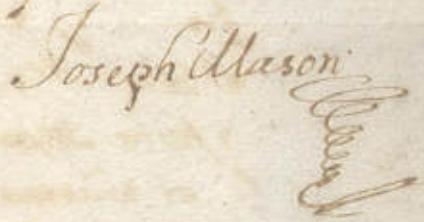 Joseph Mason